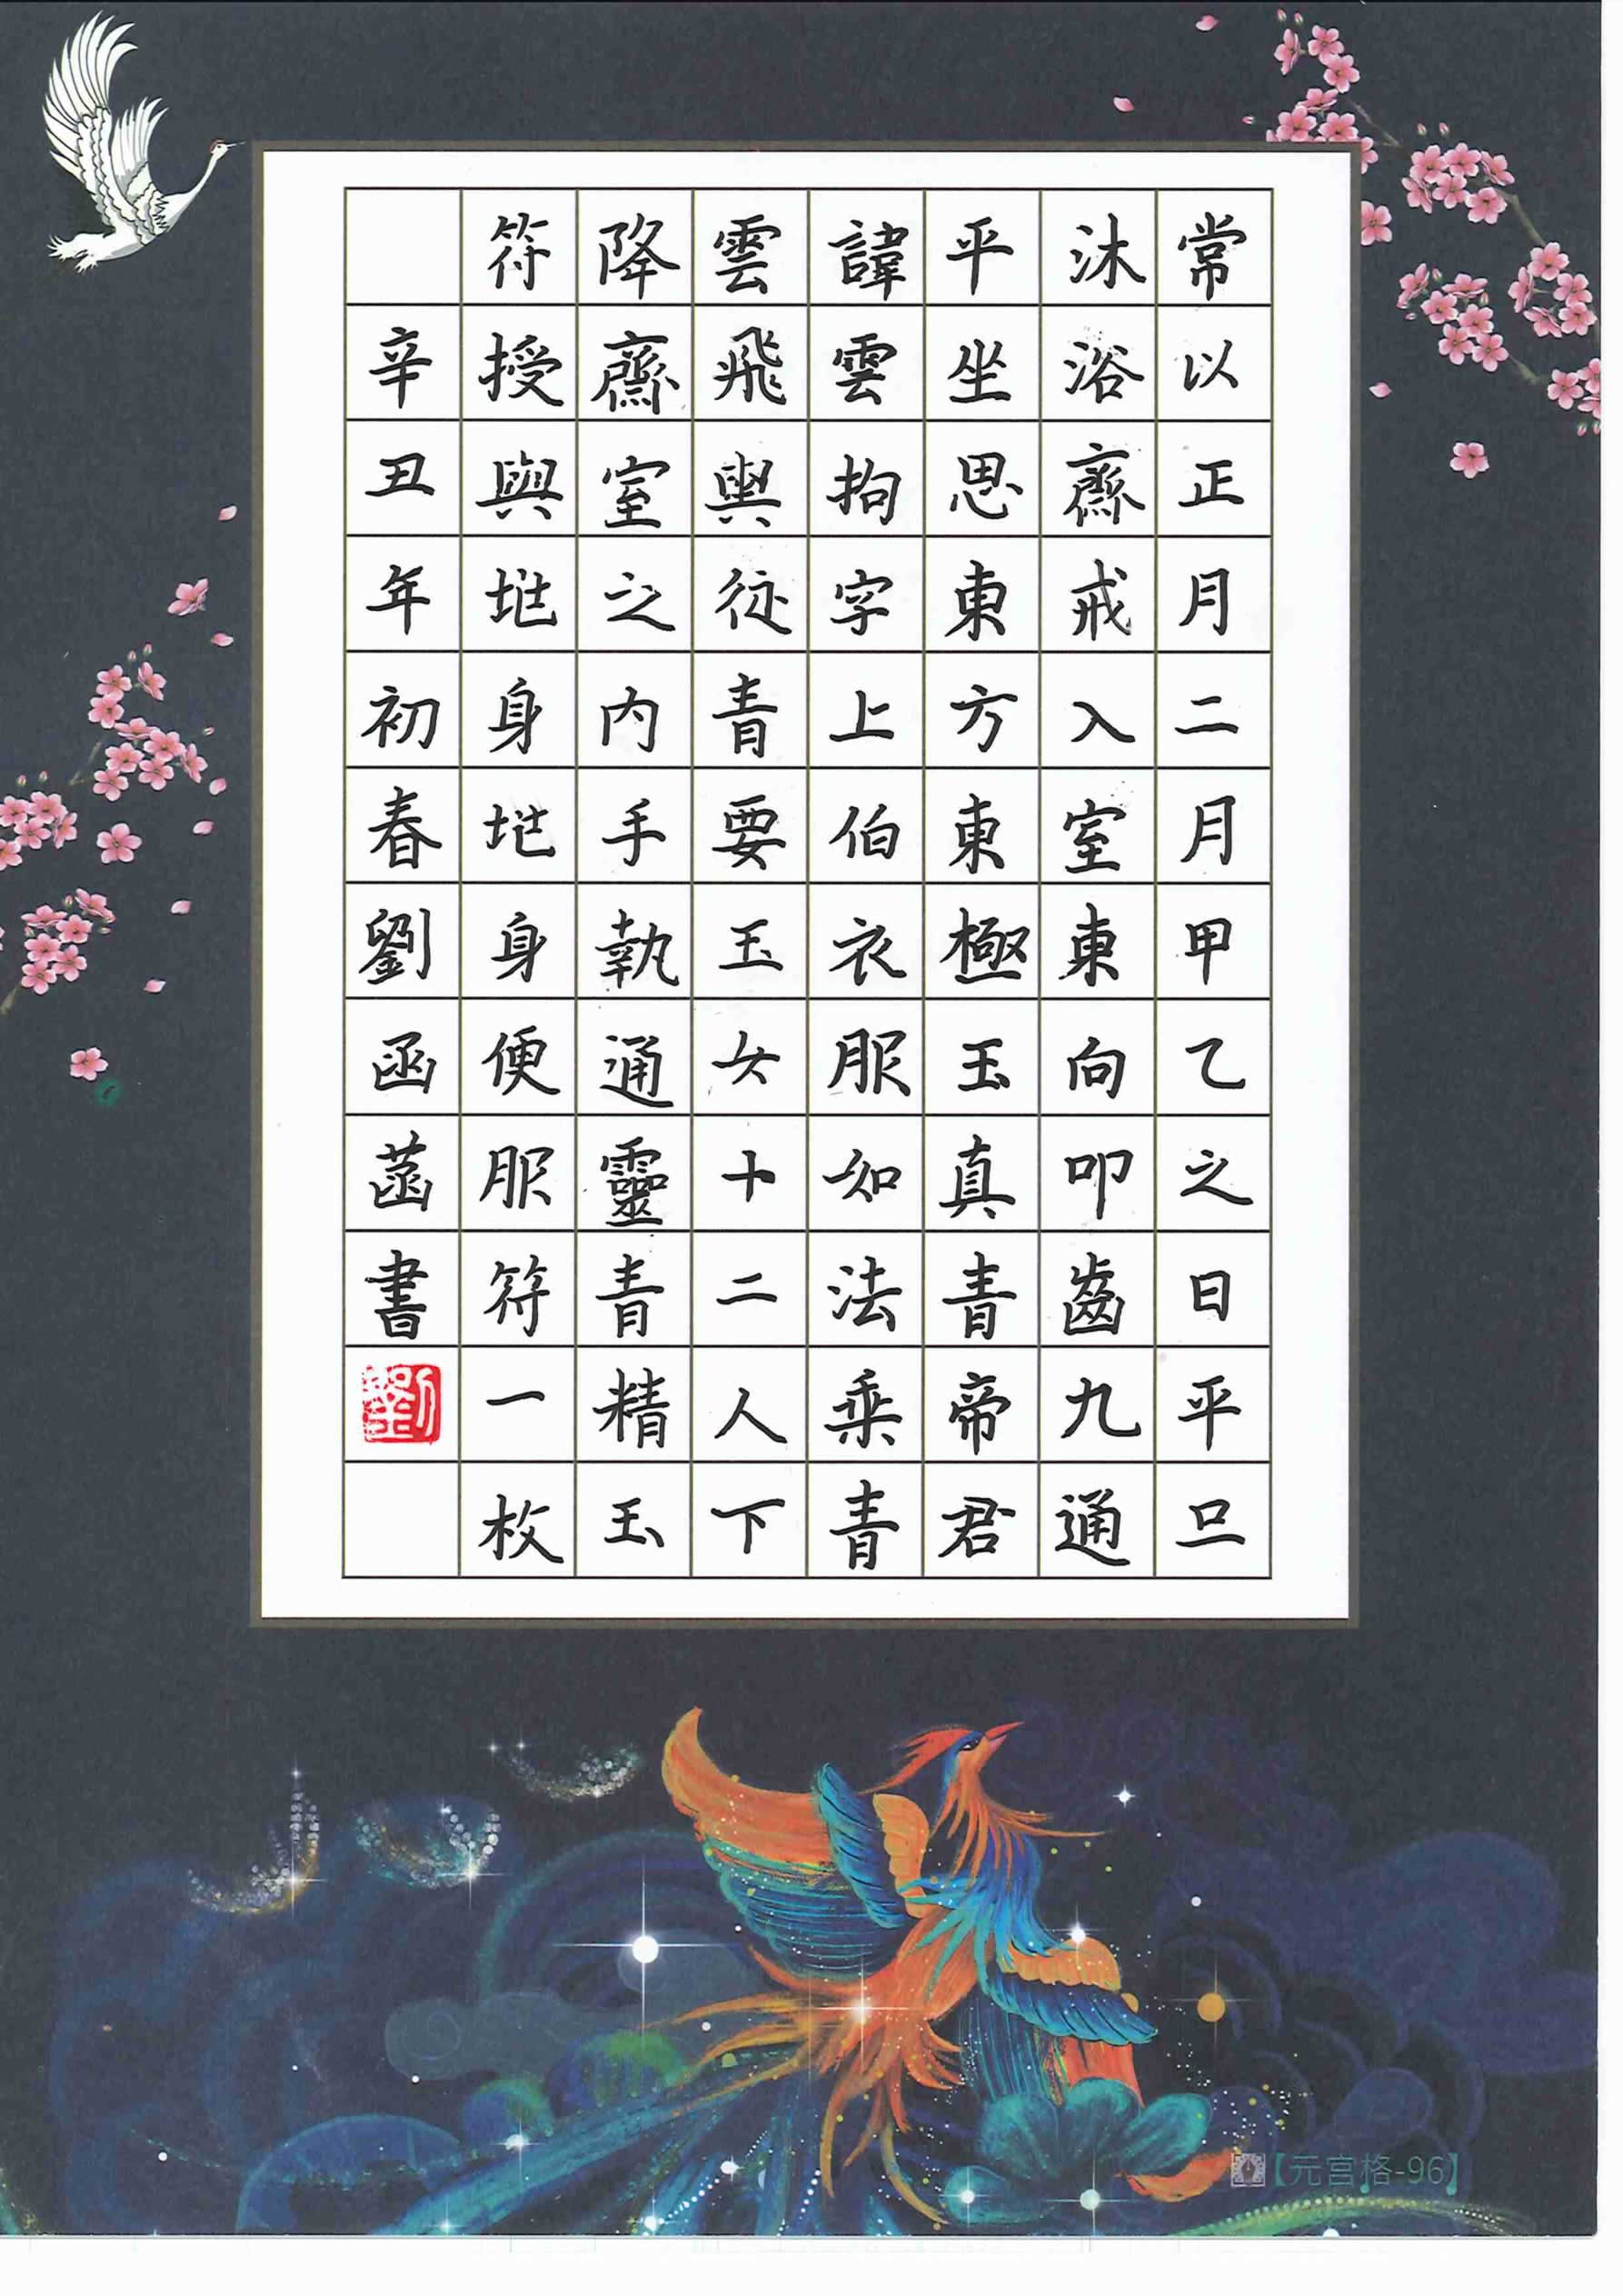 常以正月二月甲乙之日平旦
沐浴齋戒入室東向叩齒九通
平坐思東方東極玉真青帝君
諱雲拘字上伯衣服如法乘青
雲飛輿從青要玉女十二人下
降齋室之内手執通靈青精玉
符授與兆身兆身便服符一枚
辛丑年初春劉函菡書
劉
【元宮格-96】